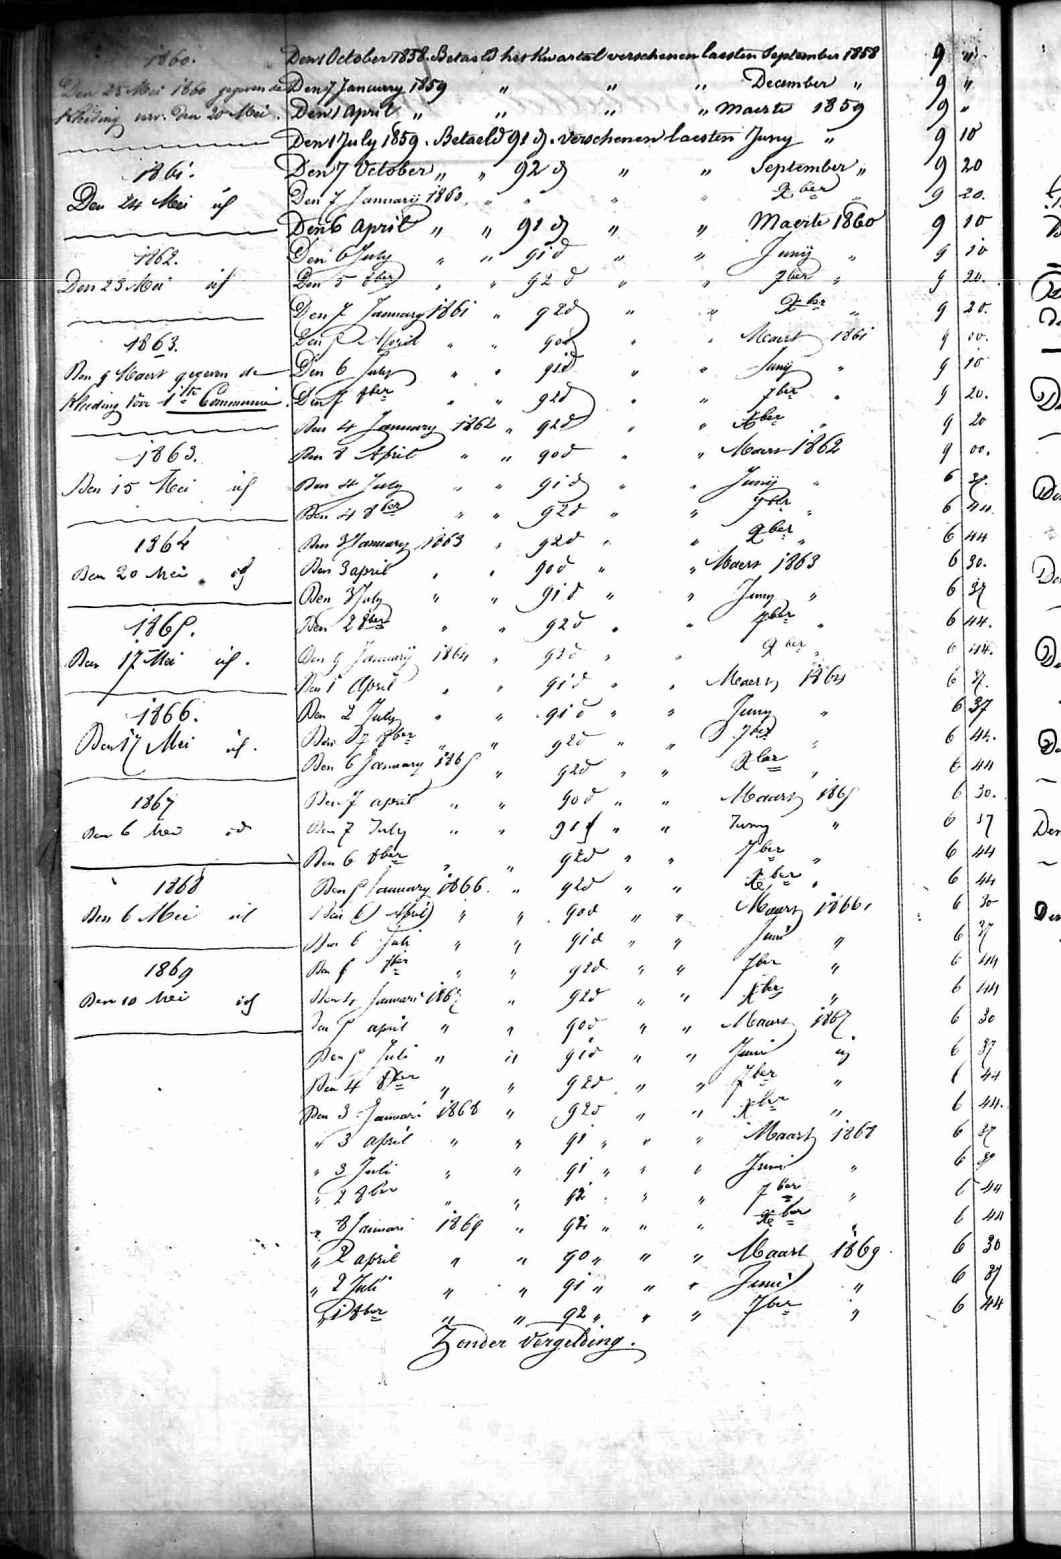 1860.
Den 25 Mei 1860 gegeven de
Kleeding verv. den 20 Mei.
1861.
Den 24 Mei id
1862.
Den 23 Mei id
1863.
Den 9 Maert gegeven de
Kleeding voor 1ste Communie
1863.
Den 15 Mei id
1864
Den 20 Mei id
1865.
Den 17 Mei id.
1866.
Den 17 Mei id.
1867
Den 6 Mei id
1868
Den 6 Mei id
1869
Den 10 Mei id
Den 1 October 1858. Betaeld het Kwartal verschenen laesten September 1858 9 "
Den 7 January 1859 " " " December " 9 "
Den 1 April " " " " Maerte 1859 9 "
Den 1 July 1859. Betaeld 91 d. verschenen laesten Juny " 9 10
Den 7 October " " 92 d " " September " 9 20
Den 7 Januarij 1860 " " " " Xber " 9 20.
Den 6 April " " 91 d " " Maerte 1860 9 10
Den 6 July " " 91 d " " Junij " 9 10
Den 5 8ber " " 92 d " " 7ber " 9 20.
Den 7 January 1861 " 92 d " " Xber " 9 20.
Den 5 April " " 90 d " " Maert 1861 9 00.
Den 6 July " " 91 d " " Junij " 9 10
Den 8ber " " 92 d " " 7ber " 9 20.
Den 4 January 1862 " 92 d " " Xber " 9 20
Den 8 April " " 90 d " " Maert 1862 9 00.
Den 4 July " " 91 d " " Junij " 6 37.
Den 4 8ber " " 92 d " " 7ber " 6 44
Den 3 January 1863 " 92 d " " Xber " 6 44
Den 3 april " " 90 d " " Maert 1863 6 30.
Den 3 July " " 91 d " " Juny " 6 37
Den 2 8ber " " 92 d " " 7ber " 6 44.
Den 9 Januarij 1864 " 92 d " " Xber " 6 44.
Den 1 April " " 91 d " " Maert 1864 6 37.
Den 2 July " " 91 d " " Juny " 6 37
Den 7 8ber " " 92 d " " 7ber " 6 44.
Den 6 January 1865 " 92 d " " Xber " 6 44
Den 7 april " " 90 d " " Maart 1865 6 30.
Den 7 July " " 91 d " " Juny " 6 37
Den 6 8ber " " 92 d " " 7ber " 6 44
Den 5 January 1866. " 92 d " " Xber " 6 44
Den 6 April " " 90 d " " Maart 1866 6 30
Den 6 Juli " " 91 d " " Juni " 6 37
Den 8ber " " 92 d " " 7ber " 6 44
Den 4 Januari 1867 " 92 d " " Xber " 6 44
Den 5 april " " 90 d " " Maart 1867 6 30
Den 5 Juli " " 91 d " " Juni " 6 37
Den 4 8ber " " 92 d " " 7ber " 6 44
Den 3 Januari 1868 " 92 d " " Xber " 6 44.
" 3 april " " 91 " " " Maart 1868 6 37
" 3 Juli " " 91 " " " Juni " 6
" 2 8ber " " 92 " " " 7ber " 6 44
" 8 Januari 1869 " 92 " " " Xber " 6 44
" 2 april " " 90 " " " Maart 1869 6 30
" 2 Juli " " 91 " " " Juni " 6 37
" 1 8ber " " 92 " " " 7ber " 6 44
Zonder vergelding.